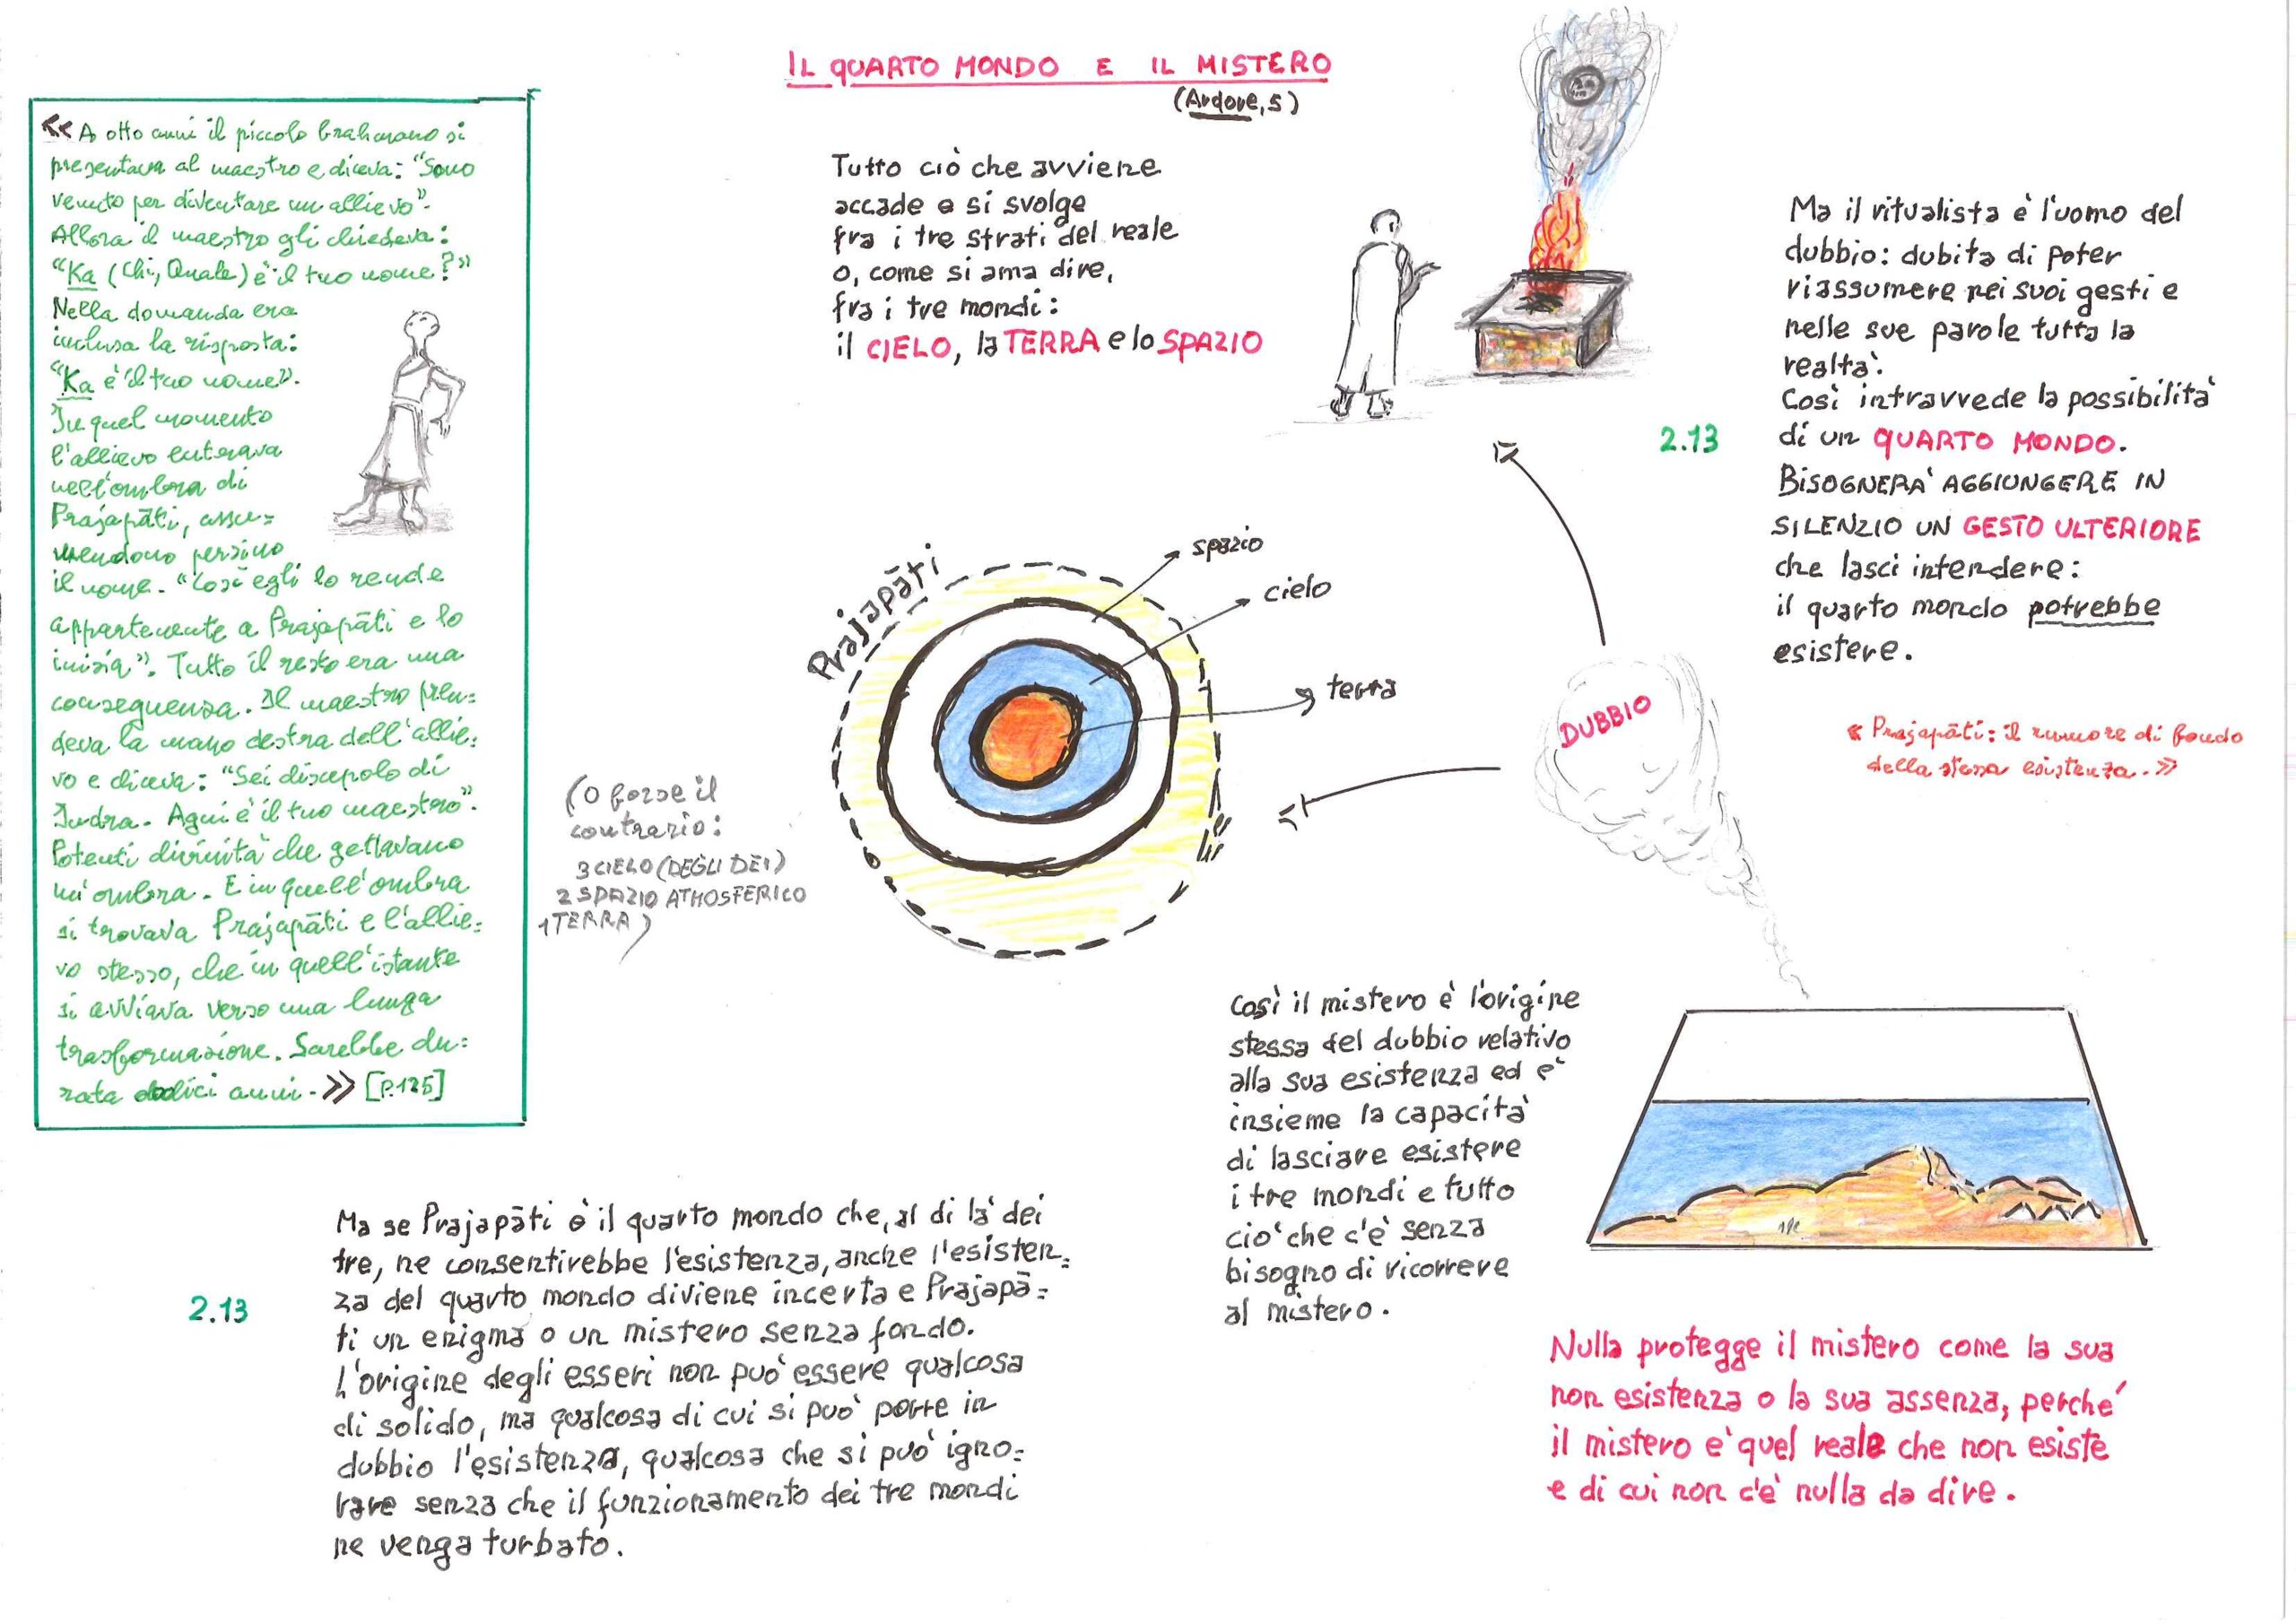 IL QUARTO MONDO E IL MISTERO
(Ardore, 5)
<< A otto anni il piccolo brahmano si
presentava al maestro e diceva: "Sono
venuto per diventare un allievo".
Allora il maestro gli chiedeva:
"Ka (Chi, Quale) è il tuo nome?"
Nella domanda era
inclusa la risposta:
"Ka è il tuo nome".
In quel momento
l'allievo entrava
nell'ombra di
Prajapāti, assu=
mendono persino
il nome. "Così egli lo rende
appartenente a Prajapāti e lo
inizia". Tutto il resto era una
conseguenza. Il maestro pren=
deva la mano destra dell'allie=
vo e diceva: "Sei discepolo di
Indra. Agni è il tuo maestro".
Potenti divinità che gettavano
un'ombra. E in quell'ombra
si trovava Prajapāti e l'allie=
vo stesso, che in quell'istante
si avviava verso una lunga
trasformazione. Sarebbe du=
rata dodici anni. >> [p.125]
Tutto ciò che avviene
accade e si svolge
fra i tre strati del reale
o, come si ama dire,
fra i tre mondi:
il CIELO, la TERRA e lo SPAZIO
Ma il ritualista è l'uomo del
dubbio: dubita di poter
riassumere nei suoi gesti e
nelle sue parole tutta la
realtà.
Così intravvede la possibilità
di un QUARTO MONDO.
BISOGNERA' AGGIUNGERE IN
SILENZIO UN GESTO ULTERIORE
che lasci intendere:
il quarto mondo potrebbe
esistere.
2.13
Prajapāti
spazio
cielo
terra
DUBBIO
<< Prajapāti: il rumore di fondo
della stessa esistenza. >>
(O forse il
contrario:
3 CIELO (DEGLI DEI)
2 SPAZIO ATMOSFERICO
1 TERRA)
Così il mistero è l'origine
stessa del dubbio relativo
alla sua esistenza ed è
insieme la capacità
di lasciare esistere
i tre mondi e tutto
ciò che c'è senza
bisogno di ricorrere
al mistero.
2.13
Ma se Prajapāti è il quarto mondo che, al di là dei
tre, ne consentirebbe l'esistenza, anche l'esisten=
za del quarto mondo diviene incerta e Prajapā=
ti un enigma o un mistero senza fondo.
L'origine degli esseri non può essere qualcosa
di solido, ma qualcosa di cui si può porre in
dubbio l'esistenza, qualcosa che si può igno=
rare senza che il funzionamento dei tre mondi
ne venga turbato.
Nulla protegge il mistero come la sua
non esistenza o la sua assenza, perché
il mistero è quel reale che non esiste
e di cui non c'è nulla da dire.